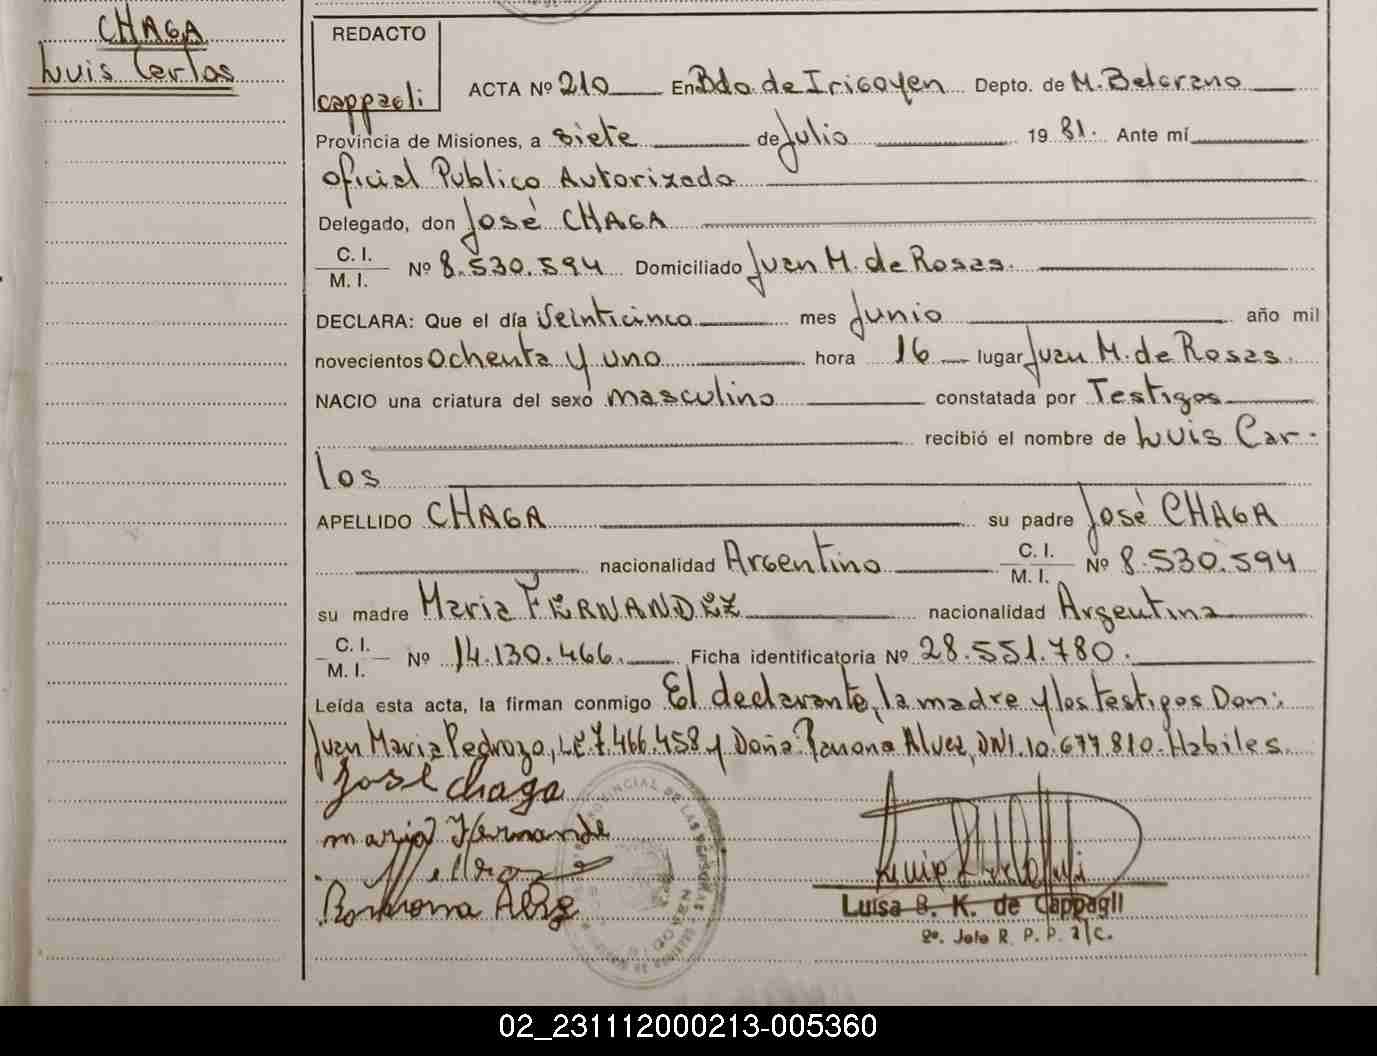 CHAGA
Luis Carlos
REDACTO
cappagli
ACTA Nº 210 En Bdo. de Irigoyen Depto. de M. Belgrano
Provincia de Misiones, a siete de Julio 1981. Ante mí
Oficial Publico Autorizado
Delegado, don José CHAGA
C. I.
M. I. Nº 8.530.594 Domiciliado Juan M. de Rosas.
DECLARA: Que el día Veinticinco mes Junio año mil
novecientos Ochenta y uno hora 16 lugar Juan M. de Rosas.
NACIO una criatura del sexo masculino constatada por Testigos
recibió el nombre de Luis Car-
los
APELLIDO CHAGA su padre José CHAGA
nacionalidad Argentino C. I. M. I. Nº 8.530.594
su madre Maria FERNANDEZ nacionalidad Argentina
C. I.
M. I. Nº 14.130.466. Ficha identificatoria Nº 28.551.780.
Leída esta acta, la firman conmigo El declarante, la madre y los testigos Don:
Juan Maria Pedrozo, LE 7.466.458 y Doña Ramona Alvez, DNI. 10.677.810. Habiles.
José Chaga
maria Fernande
Ramona
Luisa B. K. de Cappagli
2º. Jefe R. P. P. a/c.
02_231112000213-005360